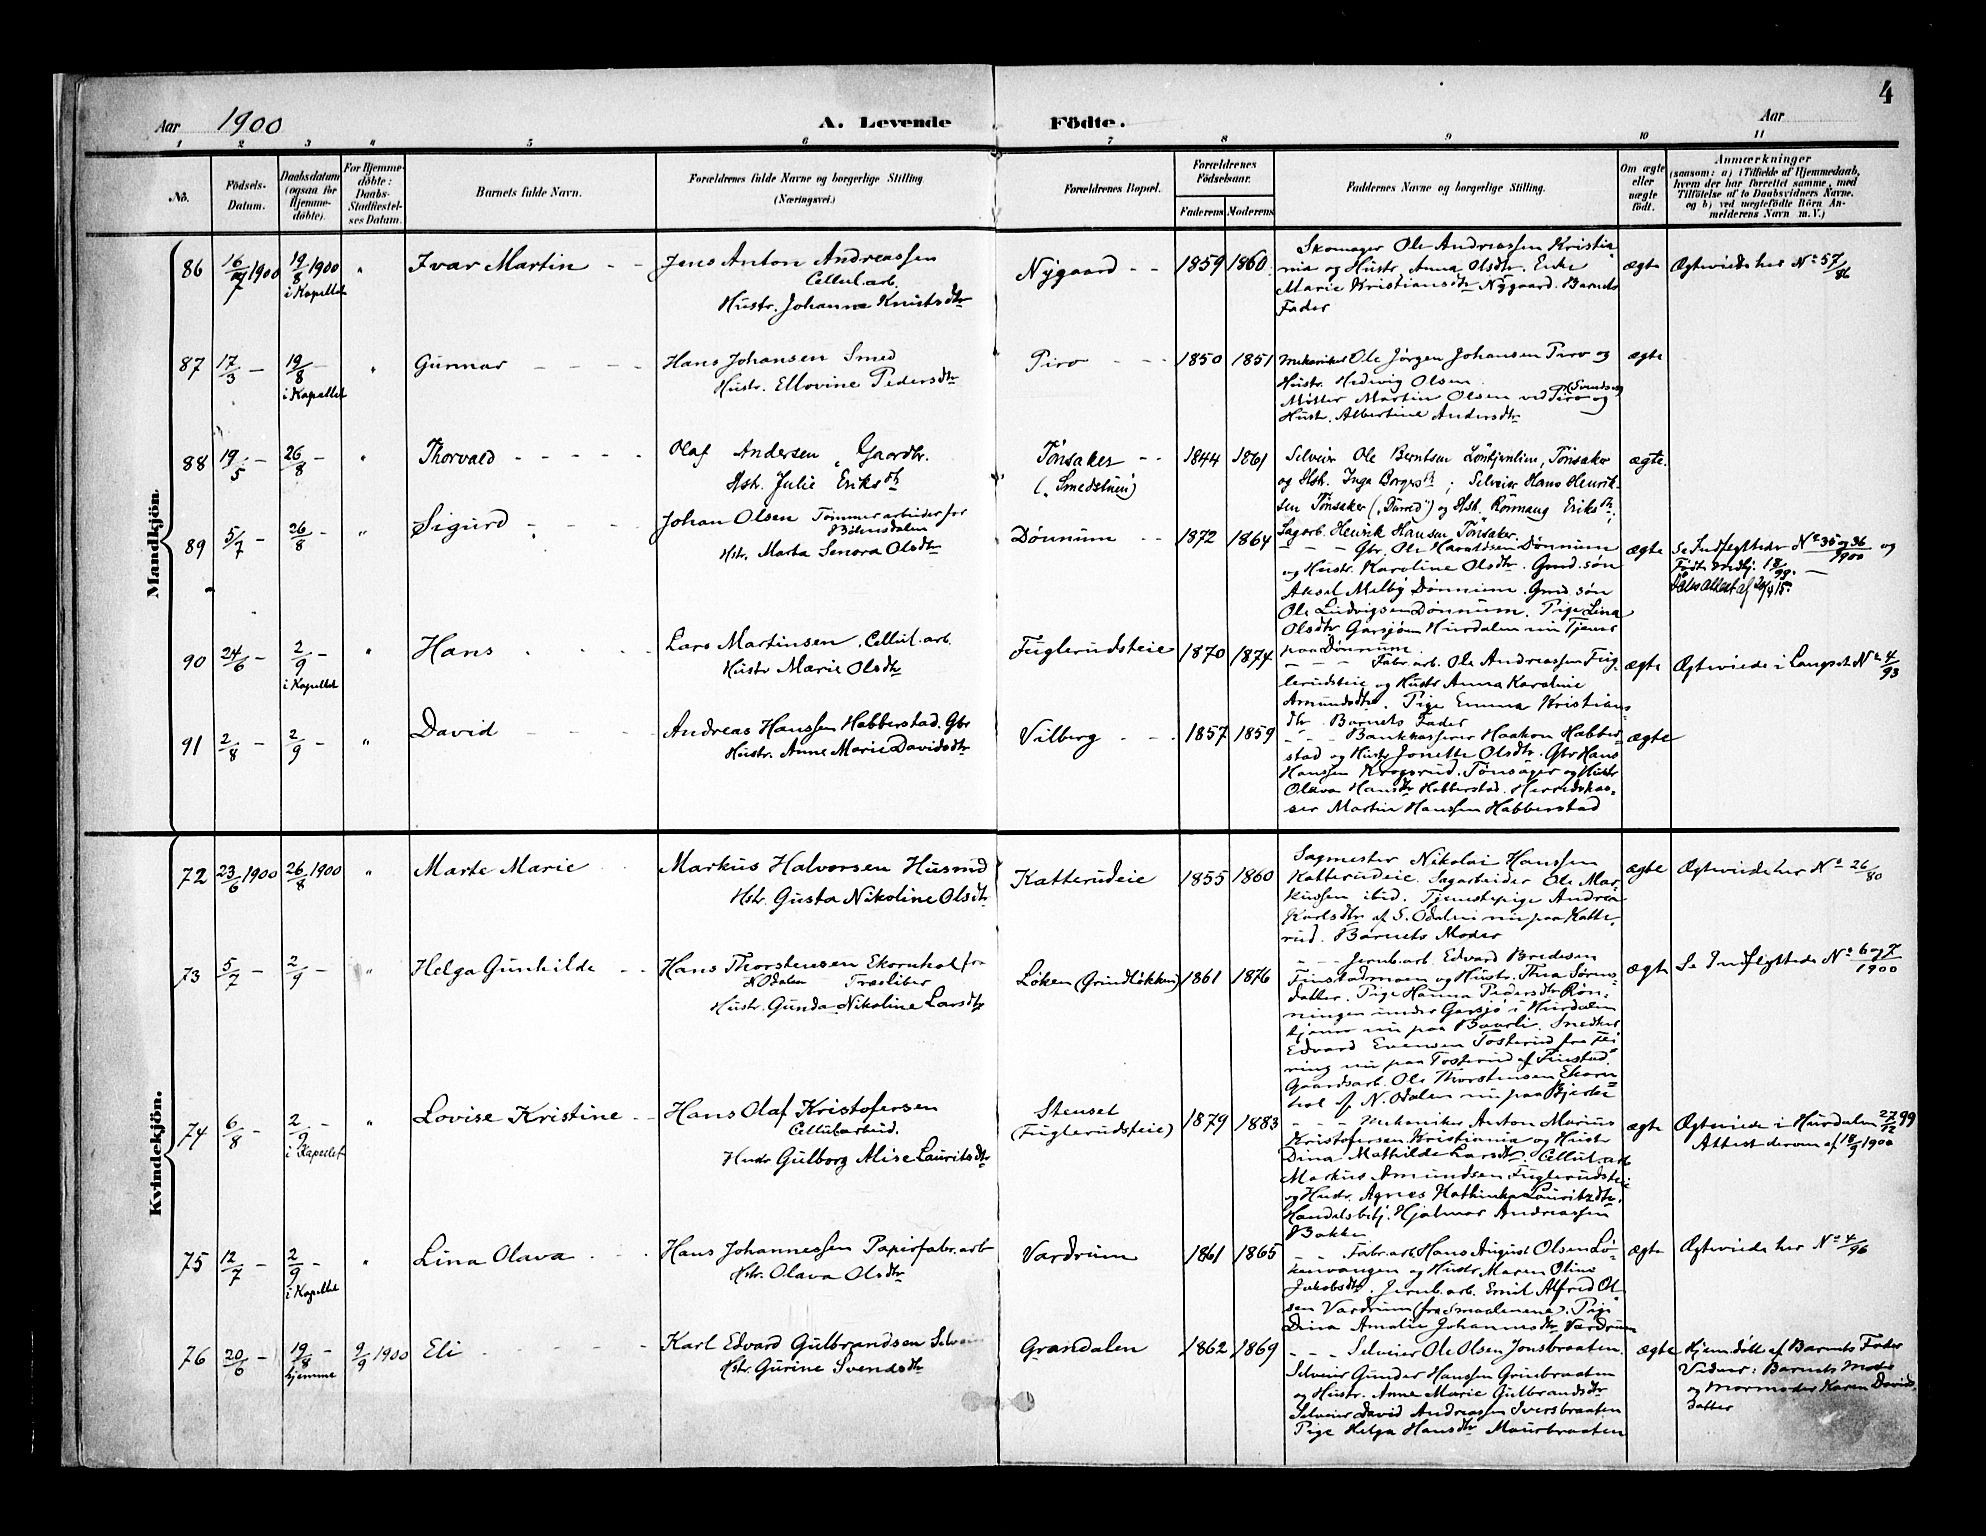 4
Aar 1900 A. Levende Födte. Aar
1 2 3 4 5 6 7 8 9 10 11
No.
Födsels-
Datum.
Daabsdatum
(ogsaa for
Hjemme-
döbte).
For Hjemme-
döbte:
Daabs-
Stadfæstel-
ses Datum.
Barnets fulde Navn.
Forældrenes fulde Navne og borgerlige Stilling
(Næringsvei.)
Forældrenes Bopæl.
Forældrenes
Födselsaar.
Faderens Moderens
Faddernes Navne og borgerlige Stilling.
Om ægte
eller
uægte
födt.
Anmærkninger
(saasom: a) i Tilfælde af Hjemmedaab,
hvem der har forrettet samme, med
Tilföielse af to Daabsvidners Navne,
og b) ved uægtefödte Börn An-
melderens Navn m. V.)
Mandkjön.
86 16/7 1900 19/8 1900
i Kapellet
"
Ivar Martin
Jens Anton Andreassen
Cellul.arb.
Hustr. Johanne Knutsdtr
Nygaard
1859 1860
Skomager Ole Andreassen Kristia
nia og Hustr. Anna Olsdtr. Enke
Marie Kristiansdtr Nygaard. Barnets
Fader
ægte
Ægteviede her No 57/86
87 17/3 – 19/8 –
i Kapellet
"
Gunnar
Hans Johansen Smed
Hustr. Ellovine Pedersdtr
Piro
1850 1851
Mekaniker Ole Jörgen Johansen Piro og
Hustr. Hedvig Olsen.
Möller Martin Olsen ved Piro og
Hustr. Albertine Andersdtr
ægte
88 19/5 – 26/8 –
"
Thorvald
Olaf Andersen, Gaardbr.
Hstr. Julie Eriksdtr
Tönsaker
("Smedstuen")
1844 1861
Selveier Ole Berntsen Tönsaker
og Hstr. Inga Borgersdtr; Selveier Hans Henrik-
sen Tönsaker og Hstr. Rönnaug Eriksdtr;
Sagarb. Henrik Hansen Tönsaker.
ægte.
89 5/7 – 26/8 –
"
Sigurd
Johan Olsen Tömmerarbeider fra
Hstr. Marta Senora Olsdtr
Dönnum
1872 1864
– – – Gbr. Ole Haraldsen Dönnum
og Hustr. Karoline Olsdtr. Gmd.sön
Aksel Melby Dönnum. Gmd sön
Ole Ludvigsen Dönnum. Pige Lina
Olsdtr. Garsjöen Hurdalen nu Tjener
paa Dönnum.
ægte
Se Indflyttede No 35 og 36/1900 og
90 24/6 – 2/9 –
i Kapellet
"
Hans
Lars Martinsen, Cellul.arb.
Hustr Marie Olsdtr
Fuglerudseie
1870 1874
– – – Fabr.arb. Ole Andreassen Fug-
lerudseie og Hustr Anna Karoline
Amundsdtr. Pige Emma Kristians
dtr. Barnets Fader
ægte
Ægteviede i Langset No 4/93
91 2/8 – 2/9 –
"
David
Andreas Hanssen Habberstad. Gbr
Hustr. Anne Marie Davidsdtr
Vilberg
1857 1859
– – – Bankkasserer Haakon Habber-
stad og Hustr Jonette Olsdtr. Gbr Hans
Hanssen Krogsrud. Tönsager og Hustr
Olava Hansdtr Habberstad. Herredskas-
ser Martin Hanssen Habberstad
ægte
Kvindekjön.
72 23/6 1900 26/8 1900
"
Marte Marie
Markus Halvorsen Husmd
Hstr. Gusta Nikoline Olsdtr
Katterudeie
1855 1860
Sagmester Nikolai Hanssen
Katterudeie. Sagarbeider Ole Mar-
kussen ibid. Tjenestepige Andrea
Karlsdtr af S. Odalen nu paa Katte-
rud. Barnets Moder
ægte
Ægteviede her No 26/80
73 5/7 – 2/9 –
"
Helga Gunhilde
Hans Thorstensen Ekornhol fra
N Odalen Træsliber
Hustr. Gunda Nikoline Larsdtr
Löken (Grindlökken)
1861 1876
– – – Jernb.arb. Edvard Bredesen
Finstadmoen og Hustr. Thea Sörens-
datter. Pige Hanna Pedersdtr Rön-
ningen under Garsjö i Hurdalen
tjener nu paa Baarli. Snedker
Edvard Evensen Tosterud fra Fei
ring nu paa Tosterud af Finstad.
Gaardsarb. Ole Thorstensen Ekorn
hol af N. Odalen nu paa Bjerke
ægte
Se Indflyttede No 6 og 7/1900
74 6/8 – 2/9 –
i Kapellet
"
Lovise Kristine
Hans Olaf Kristofersen
Cellul.arbeid.
Hustr Gulborg Alise Lauritsdtr
Stenset
(Fuglerudseie)
1879 1883
– – – Mekaniker Anton Marius
Kristofersen Kristiania og Hustr
Dina Mathilde Larsdtr. Cellul.arb
Markus Amundsen Fuglerudseie
og Hustr. Agnes Kathinka Lauritzdtr.
Handelsbetj. Hjalmar Andreassen
Bakken
ægte
Ægteviede i Hurdalen 27/12 99
Attest derom af 18/9 1900
75 12/7 – 2/9 –
i Kapellet
"
Lina Olava
Hans Johannessen Papirfabr.arb
Hstr. Olava Olsdtr
Vardrum
1861 1865
– – Fabr.arb. Hans August Olsen Lö-
kenvangen og Hustr Maren Oline
Jakobsdtr. Jernb.arb. Emil Alfred Ol
sen Vardrum (fra Smaalenene. Pige
Dina Amalie Johannesdtr Vardrum
ægte
Ægteviede her No 4/96
76 20/6 – 19/8 –
hjemme
9/9 1900
Eli
Karl Edvard Gulbrandsen Selveier
Hstr. Gurine Svendsdtr
Grandalen
1862 1869
– – – Selveier Ole Olsen Jonsbraaten.
Selveier Gunder Hanssen Grinbraaten
og Hustr. Anne Marie Gulbrandsdtr
Selveier David Andreassen Iversbraaten
Pige Helga Hansdtr Maurbraaten
ægte
Hjemdöbt af Barnets Fader
Vidner: Barnets Moder
og Mormoder Karen Davids
datter